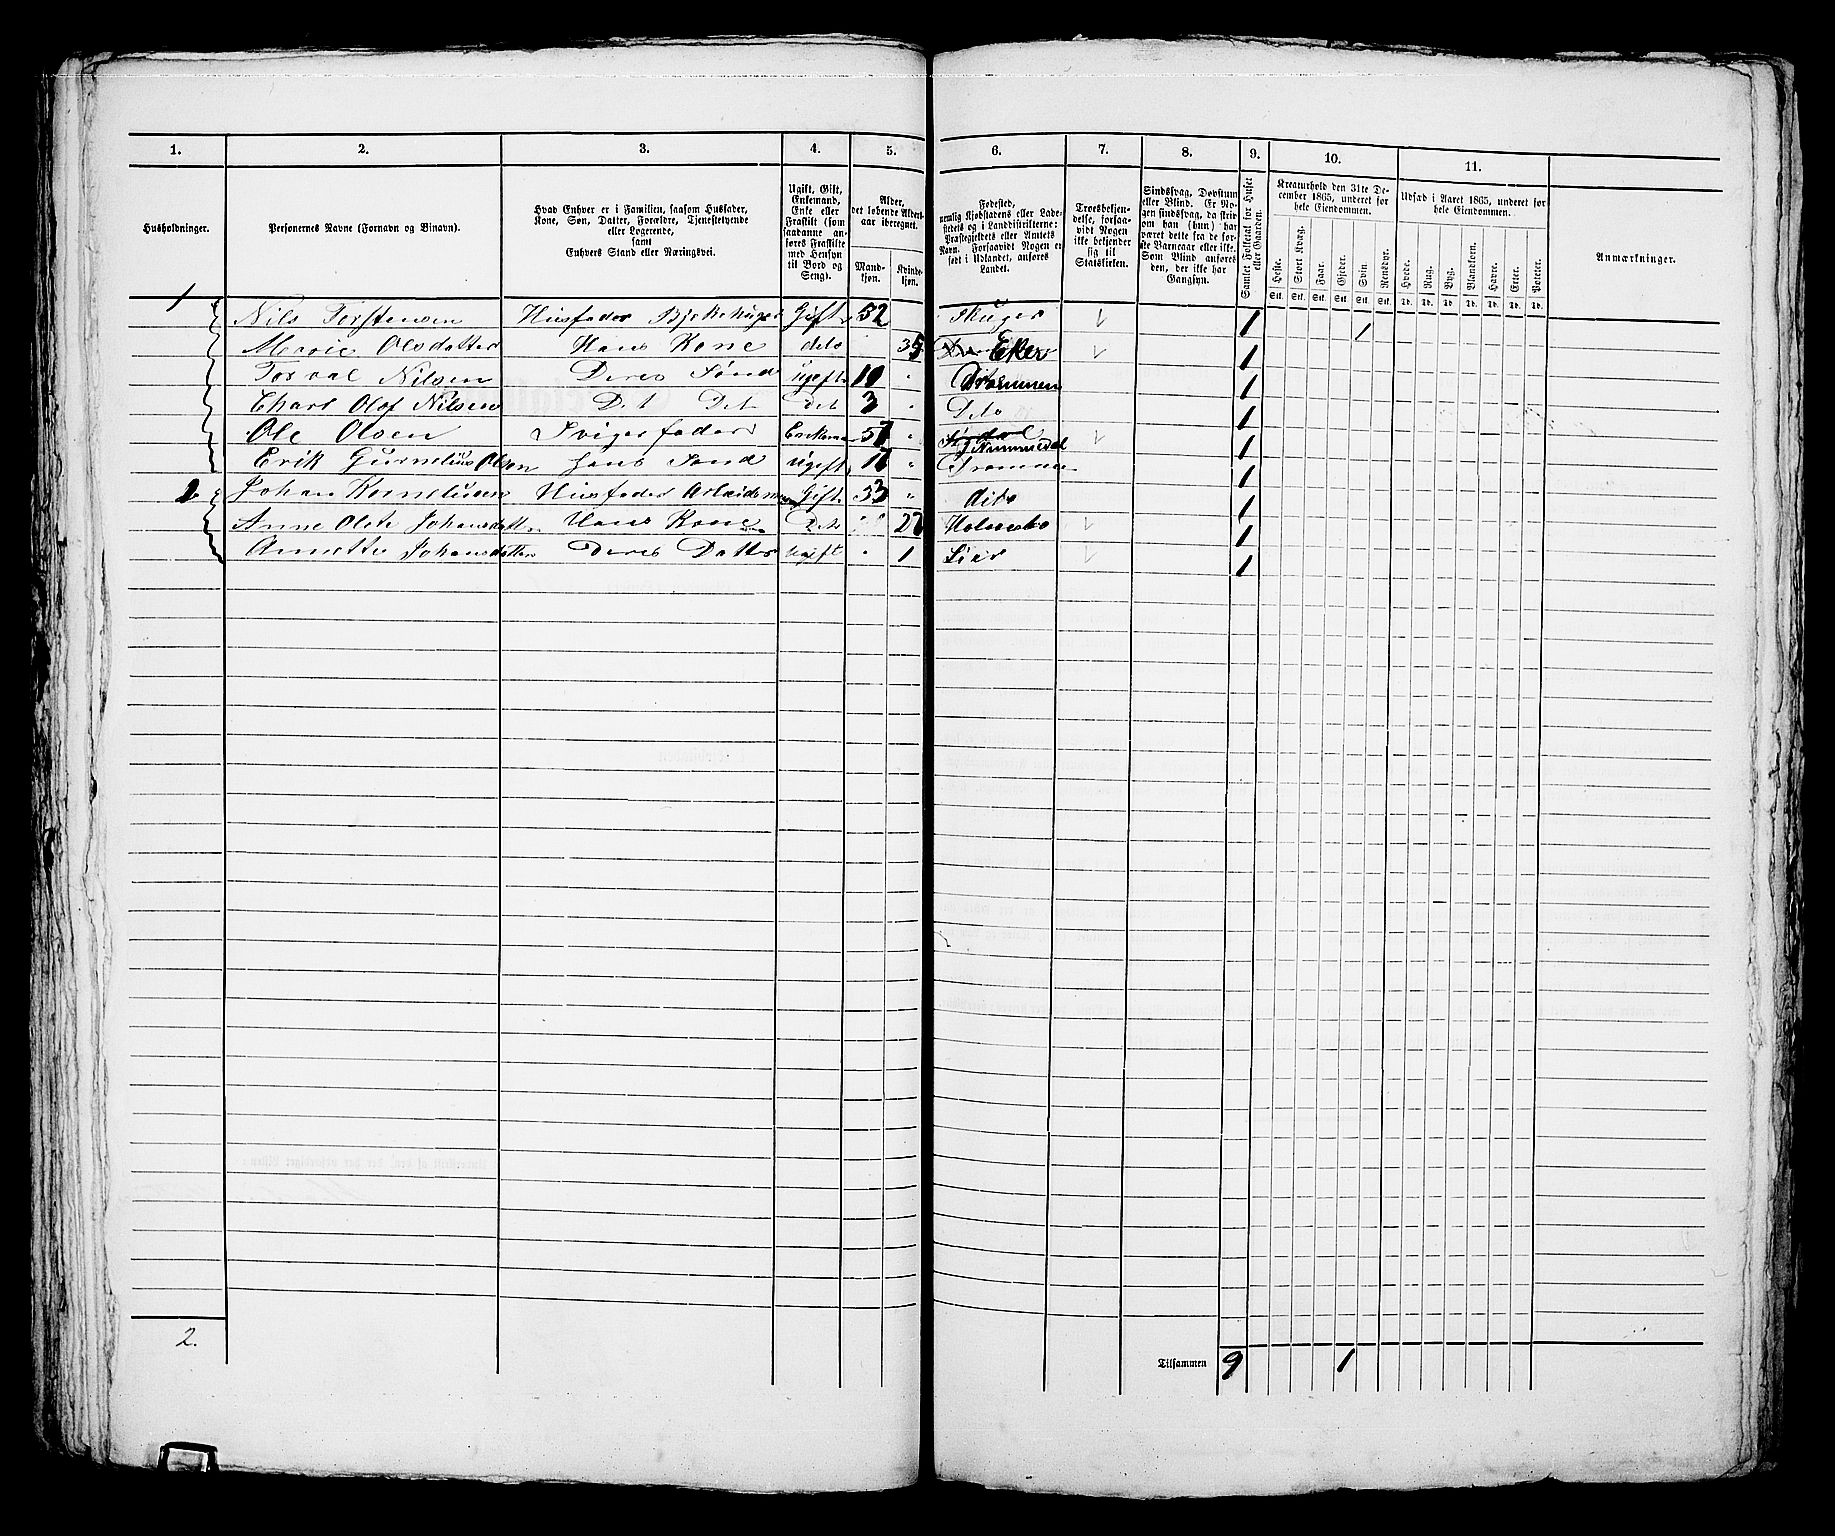 1. 2. 3. 4. 5. 6. 7. 8. 9. 10. 11.
Husholdninger.
Personernes Navne (Fornavn og Binavn).
Hvad Enhver er i Familien, saasom Husfader,
Kone, Søn, Datter, Forældre, Tjenestetyende
eller Logerende,
samt
Enhvers Stand eller Næringsvei.
Ugift, Gift,
Enkemand,
Enke eller
Fraskilt (som
saadanne an-
føres Fraskilte
med Hensyn
til Bord og
Seng).
Alder,
det løbende Alders-
aar iberegnet.
Mand-
kjøn.
Kvinde-
kjøn.
Fødested,
nemlig Kjøbstadens eller Lade-
stedets og i Landdistrikterne:
Præstegjeldets eller Amtets
Navn. Forsaavidt Nogen er
født i Udlandet, anføres
Landet.
Troesbekjen-
delse, forsaa-
vidt Nogen
ikke bekjender
sig til
Statskirken.
Sindssvag, Døvstum
eller Blind. Er No-
gen sindssvag, da skriv
om han (hun) har
været dette fra de før-
ste Barneaar eller ikke.
Som Blind anføres
den, der ikke har
Gangsyn.
Samlet Folketal for Huset
eller Gaarden.
Kreaturhold den 31te De-
cember 1865, underet for
hele Eiendommen.
Heste. Stort Kvæg. Faar. Gjeder. Svin. Rensdyr.
Stk. Stk. Stk. Stk. Stk. Stk.
Udsæd i Aaret 1865, underet for
hele Eiendommen.
Hvede. Rug. Byg. Blandkorn. Havre. Erter. Poteter.
Td. Td. Td. Td. Td. Td. Td.
Anmærkninger.
1 Nils Torstensen Husfader Gift 52 Skuger 1 1
Olsdatter Hans Kone deto 35 Eker 1
Torval Nilsen Deres Sönd ugeft 10 Drammen 1
Charl Olof Nilsen Det Det Det 3 Deto 1
Ole Olsen Svigerfader Enkeman 57 Nummedal 1
Erik Olsen hans Sönd ugeft 17 Drammen 1
2 Johan Kornelusen Husfader Gift 53 dito 1
Anne Olete Johansdatt. Hans Kone Deto 27 Holmsbo 1
Annette Johansdatter Deres Datter ugift 1 Lier 1
2.
Tilsammen 9 1